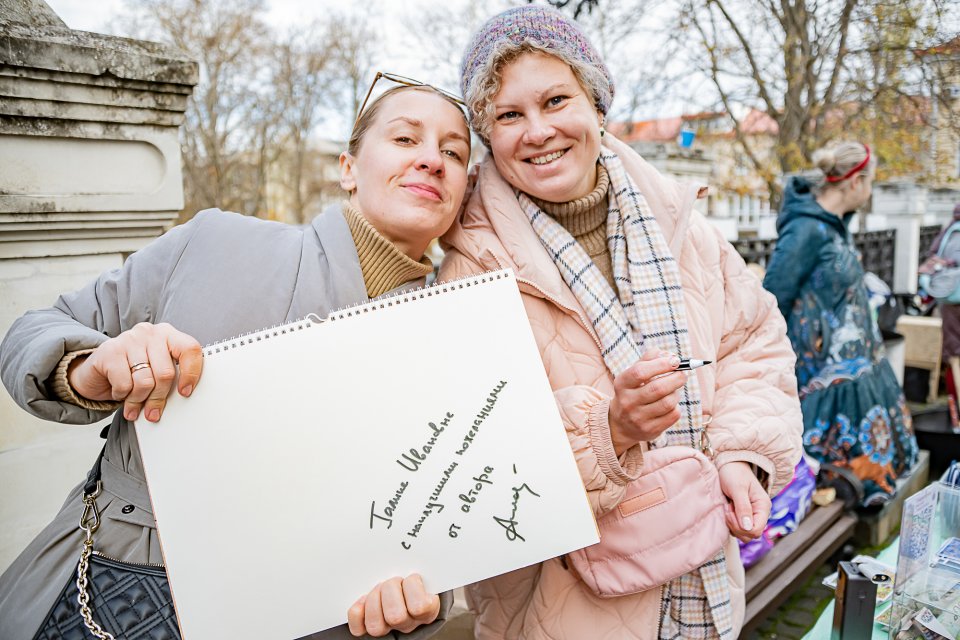 Галине Ивановне
с наилучшими пожеланиями
от автора